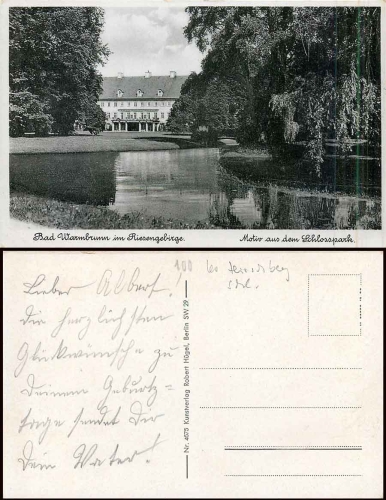 Bad Warmbrunn im Riesengebirge.
Motiv aus dem Schlosspark.
100 bei
Lieber Albert!
die herzlichsten
Glückwünsche zu
Deinem Geburts=
tage sendet Dir
Dein Vater!
Nr. 4075 Kunstverlag Robert Hügel, Berlin SW 29